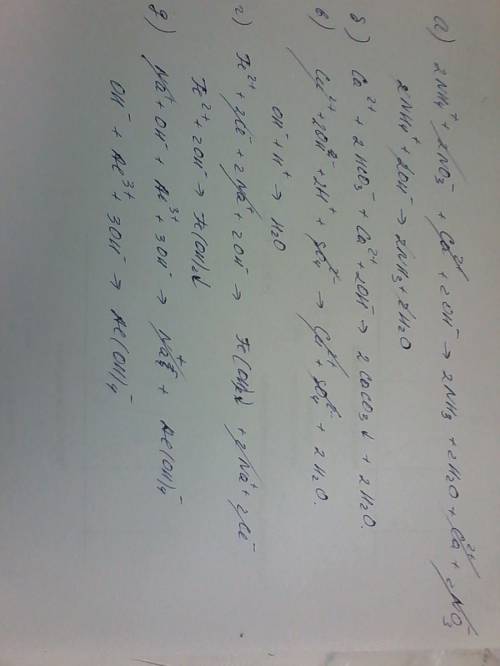 а) 2NH₄⁺ + 2NO₃⁻ + Ca²⁺ + 2OH⁻ → 2NH₃ + 2H₂O + Ca²⁺ + 2NO₃⁻
2NH₄⁺ + 2OH⁻ → 2NH₃ + 2H₂O
б) Ca²⁺ + 2HCO₃⁻ + Ca²⁺ + 2OH⁻ → 2CaCO₃↓ + 2H₂O.
в) Cu²⁺ + 2OH⁻ + 2H⁺ + SO₄²⁻ → Cu²⁺ + SO₄²⁻ + 2H₂O.
OH⁻ + H⁺ → H₂O
г) Fe²⁺ + 2Cl⁻ + 2Na⁺ + 2OH⁻ → Fe(OH)₂↓ + 2Na⁺ + 2Cl⁻
Fe²⁺ + 2OH⁻ → Fe(OH)₂↓
д) Na⁺ + OH⁻ + Al³⁺ + 3OH⁻ → Na⁺ + Al(OH)₄⁻
OH⁻ + Al³⁺ + 3OH⁻ → Al(OH)₄⁻